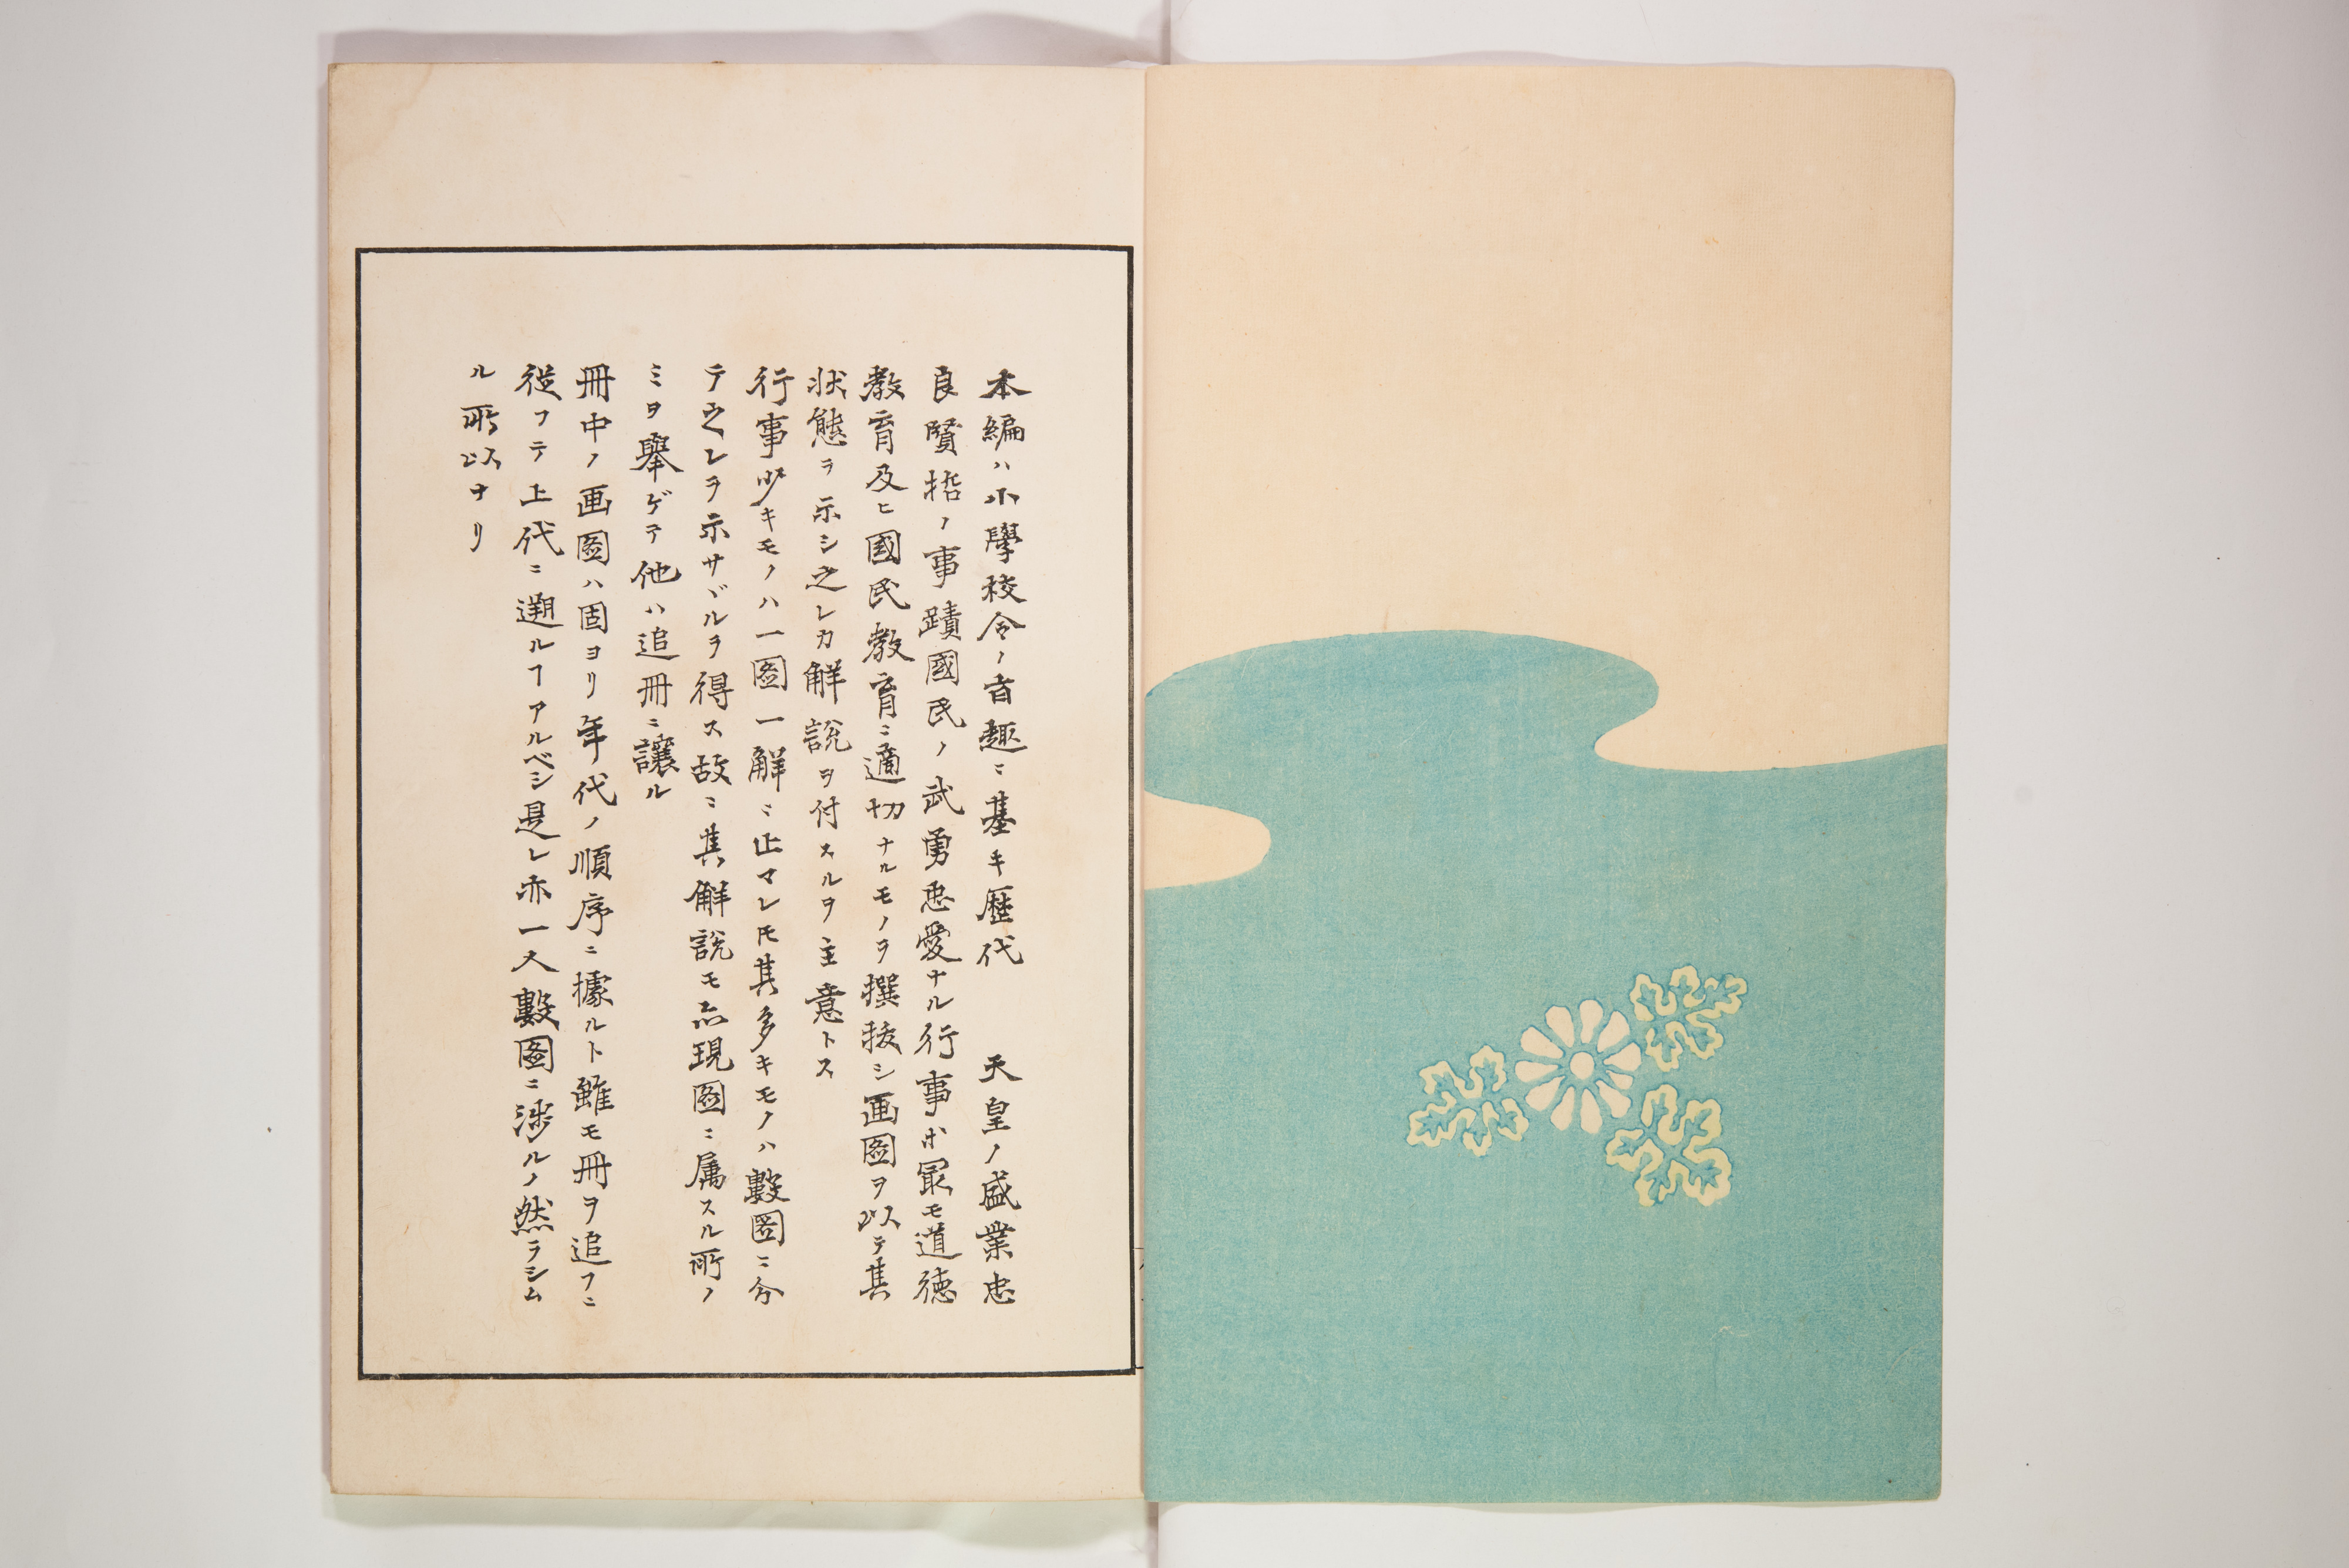 本編ハ小學校令ノ旨趣ニ基キ歴代　天皇ノ盛業忠
良賢哲ノ事蹟國民ノ武勇忠愛ナル行事ホ最モ道德
教育及ヒ國民教育ニ適切ナルモノヲ撰拔シ画圖ヲ以テ其
状態ヲ示シ之レカ解説ヲ付スルヲ主意トス
行事少キモノハ一圖一解ニ止マレ𪜈其多キモノハ數圖ニ分
テ之レヲ示サヾルヲ得ス故ニ其解説モ亦現圖ニ属スル所ノ
ミヲ舉ゲテ他ハ追冊ニ讓ル
冊中ノ画圖ハ固ヨリ年代ノ順序ニ據ルト雖モ冊ヲ追フニ
從フテ上代ニ遡ルヿアルベシ是レ亦一人數圖ニ涉ルノ然ラシム
ル所以ナリ